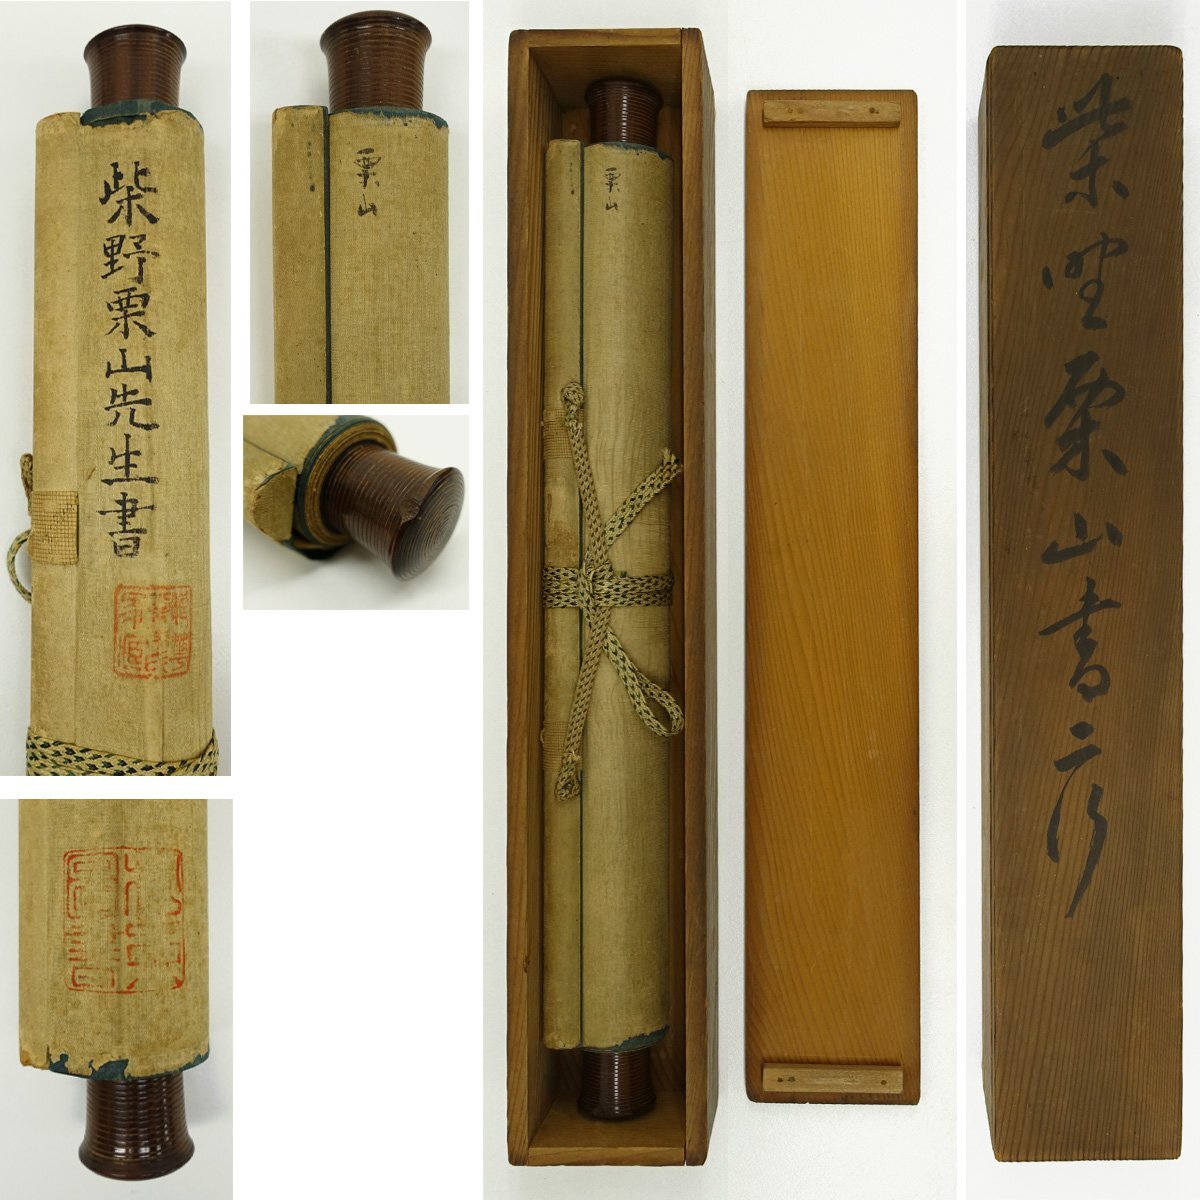 柴野栗山先生書
栗山
栗山
柴埜栗山書二行